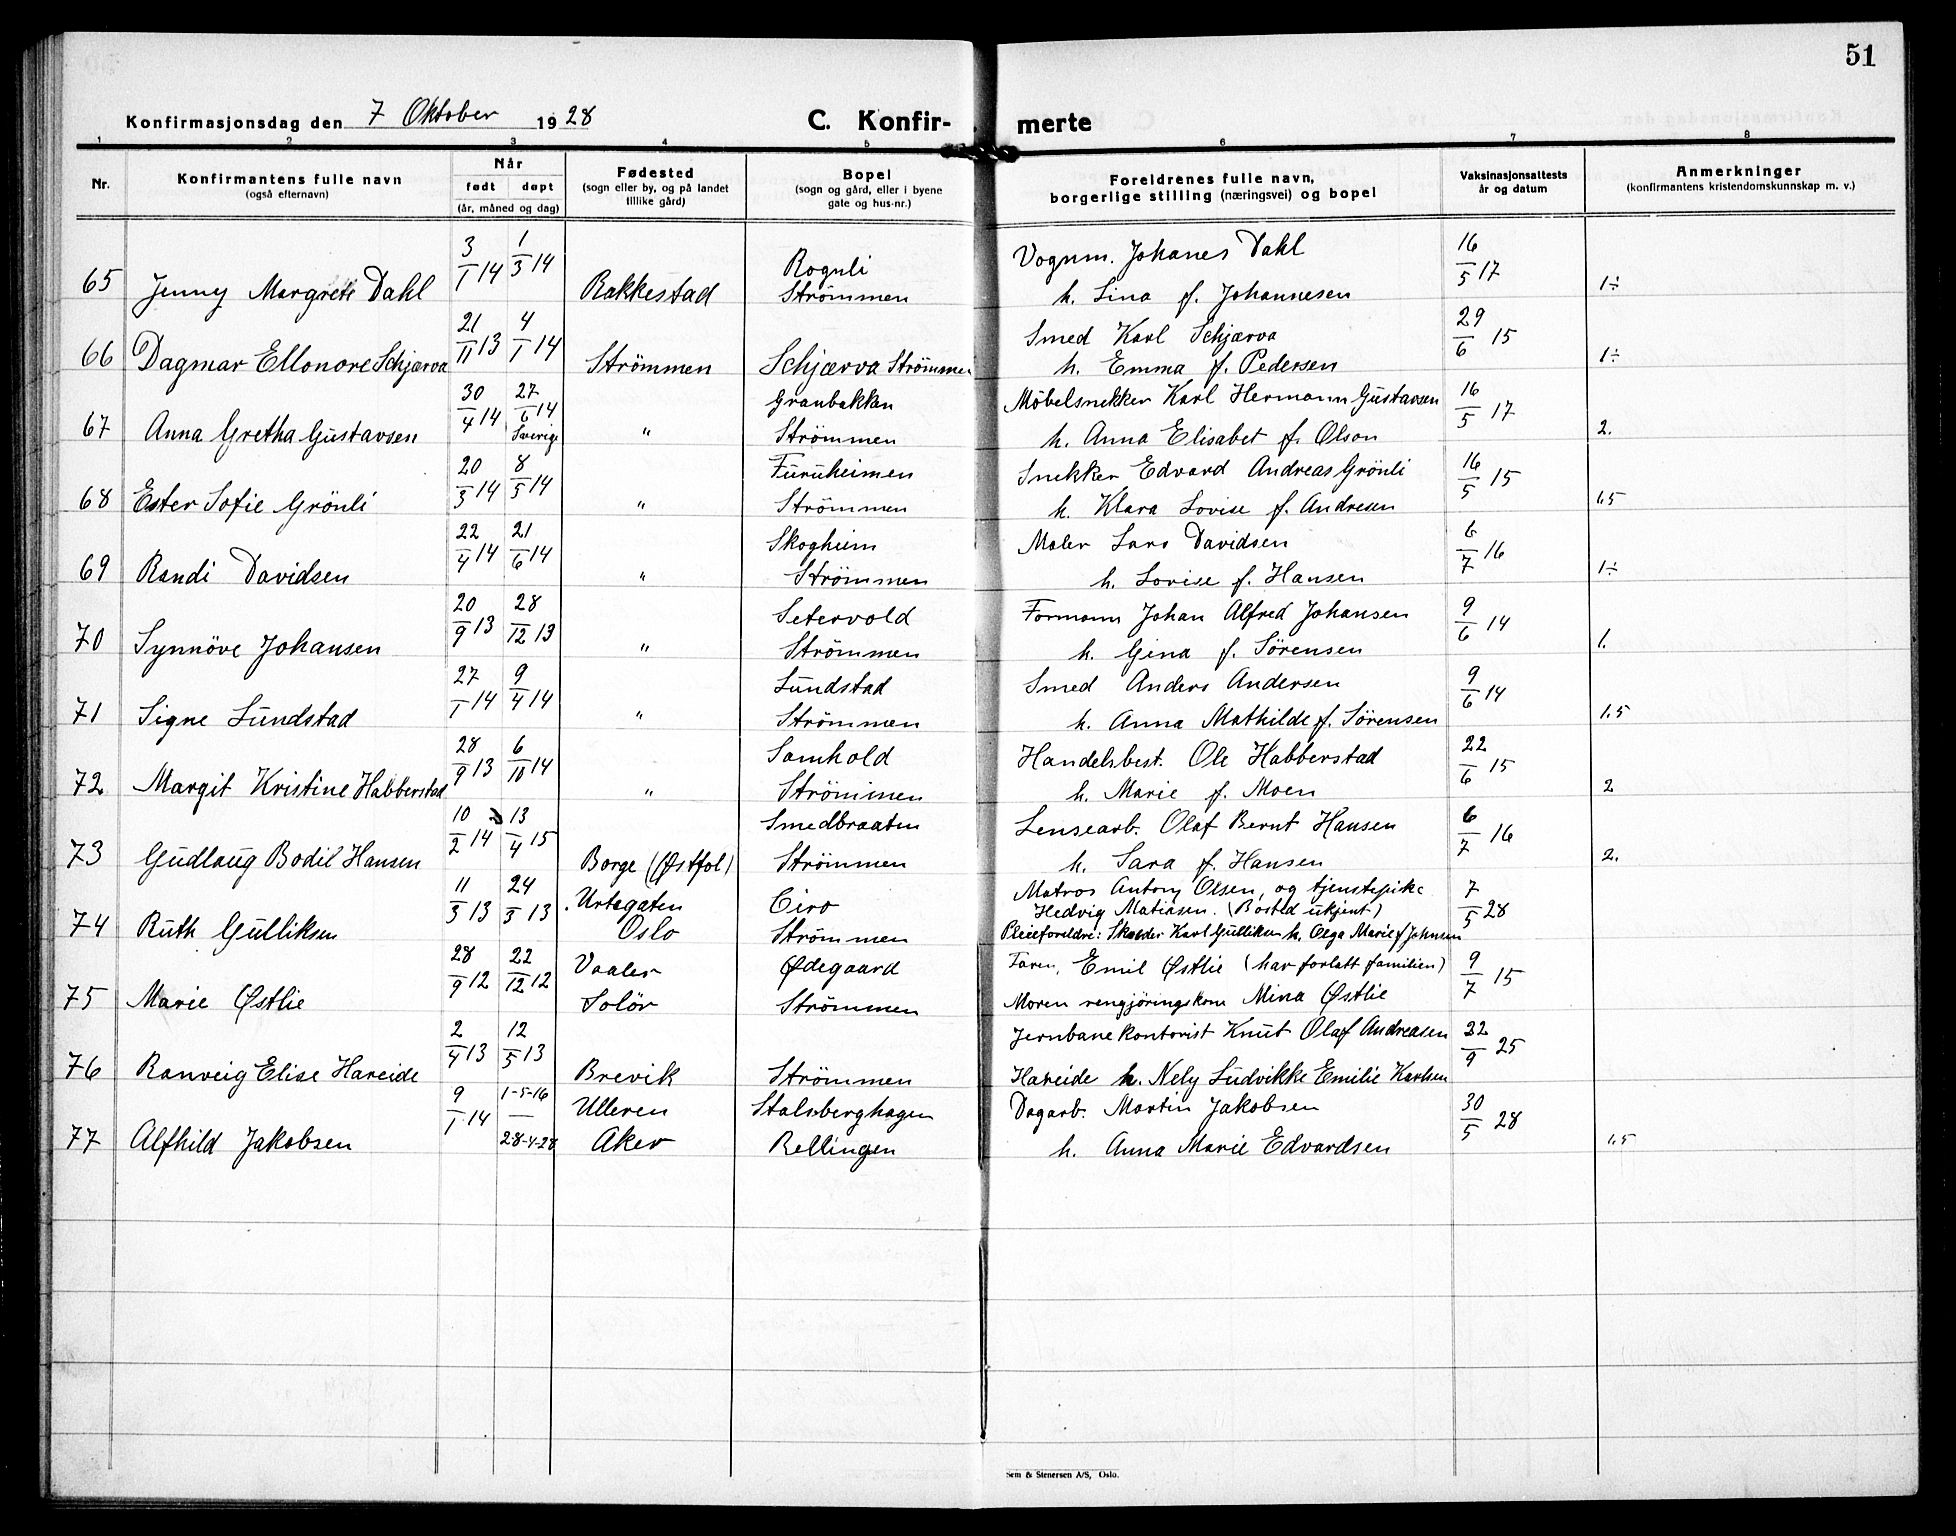 51
Konfirmasjonsdag den 7 Oktober 1928 C. Konfir- merte
1 2 3 4 5 6 7 8
Nr. Konfirmantens fulle navn (også efternavn) Når født døpt (år, måned og dag) Fødested (sogn eller by, og på landet tillike gård) Bopel (sogn og gård, eller i byene gate og hus-nr.) Foreldrenes fulle navn, borgerlige stilling (næringsvei) og bopel Vaksinasjonsattests år og datum Anmerkninger (konfirmantens kristendomskunnskap m. v.)
3/1 14 1/3 14 Roguli Vognm. Johanes Dahl 16/5 17
65 Jenny Margrete Dahl Rakkestad Strömmen h. Lina f. Johannesen 1÷
21/11 13 4/1 14 Smed Karl Schjærva 29/6 15
66 Dagmar Ellonore Schjærva Strömmen Schjærva Strömmen h. Emma f. Pedersen 1÷
30/4 14 27/6 14 Granbakken Möbelsnekker Karl Hermann Gustavsen 16/5 17
67 Anna Gretha Gustavsen Sverige " Strömmen h. Anna Elisabet f. Olson 2.
20/3 14 8/5 14 Furuheimen Snekker Edvard Andreas Grönli 16/5 15
68 Ester Sofie Grönli " Strömmen h. Klara Lovise f. Andresen 1.5
22/4 14 21/6 14 Skogheim Maler Lars Davidsen 6/7 16
69 Randi Davidsen " Strömmen h. Lovise f. Hansen 1÷
20/9 13 28/12 13 Setervold Formann Johan Alfred Johansen 9/6 14
70 Synnöve Johansen " Strömmen h. Gina f. Sörensen 1.
27/1 14 9/4 14 Lundstad Smed Anders Andersen 9/6 14
71 Signe Lundstad " Strömmen h. Anna Mathilde f. Sörensen 1.5
28/9 13 6/10 14 Samhold Handelsbest. Ole Habberstad 22/6 15
72 Margit Kristine Habberstad " Strömmen h. Marie f. Moen 2
10/2 14 13/4 15 Smedbraaten Lensearb. Olaf Bernt Hansen 6/7 16
73 Gudlaug Bodil Hansen Borge (Østfol) Strömmen h. Sara f. Hansen 2.
11/3 13 24/3 13 Urtegaten Ciro Matros Antony Olsen, og tjenstepike 7/5 28
Hedvig Matiasen. (Bosted ukjent)
74 Ruth Gulliksen Oslo Strömmen Pleieforeldre: Skræder Karl Gulliksen h. Olga Marie f. Johnsen
28/9 12 22/12 12 Vaaler Ødegaard Faren, Emil Østlie (har forlatt familien) 9/7 15
75 Marie Østlie Solör Strömmen Moren rengjöringskone Mina Østlie
2/4 13 12/5 13 Jernbanekontorist Knut Olaf Andreasen 22/9 25
76 Ranveig Elise Hareide Brevik Strömmen Hareide h. Nely Ludvikke Emilie Karlsen
9/1 14 1-5-16 Ulleren Stalsberghagen Dagarb. Martin Jakobsen 30/5 28
77 Alfhild Jakobsen 28-4-28 Aker Rellingen h. Anna Marie Edvardsen 1.5
Sem & Stenersen A/S, Oslo.